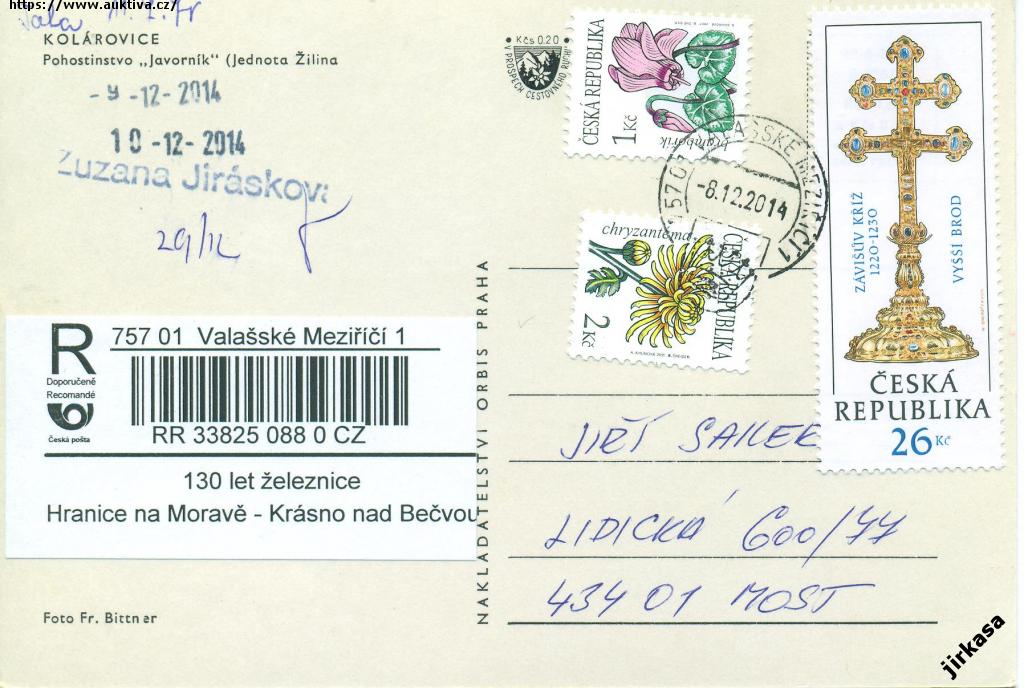 https://www.auktiva.cz/
KOLÁROVICE
Pohostinstvo „Javorník" (Jednota Žilina
-9-12-2014
10-12-2014
Zuzana Jirásková
29/12
Kčs 0.20
V PROSPĚCH CESTOVNÉHO RUCHU
ČESKÁ REPUBLIKA
1 Kč
brambořík
757 01 VALAŠSKÉ MEZIŘÍČÍ 1
-8.12.2014
chryzantéma
ČESKÁ REPUBLIKA
2 Kč
ZÁVIŠŮV KŘÍŽ
1220-1230
VYŠŠÍ BROD
ČESKÁ
REPUBLIKA
26 Kč
R
Doporučeně
Recomandé
Česká pošta
757 01 Valašské Meziříčí 1
RR 33825 088 0 CZ
130 let železnice
Hranice na Moravě - Krásno nad Bečvou
NAKLADATELSTVÍ ORBIS PRAHA
JIŘÍ SAILER
LIDICKÁ 600/77
434 01 MOST
Foto Fr. Bittner
jirkasa